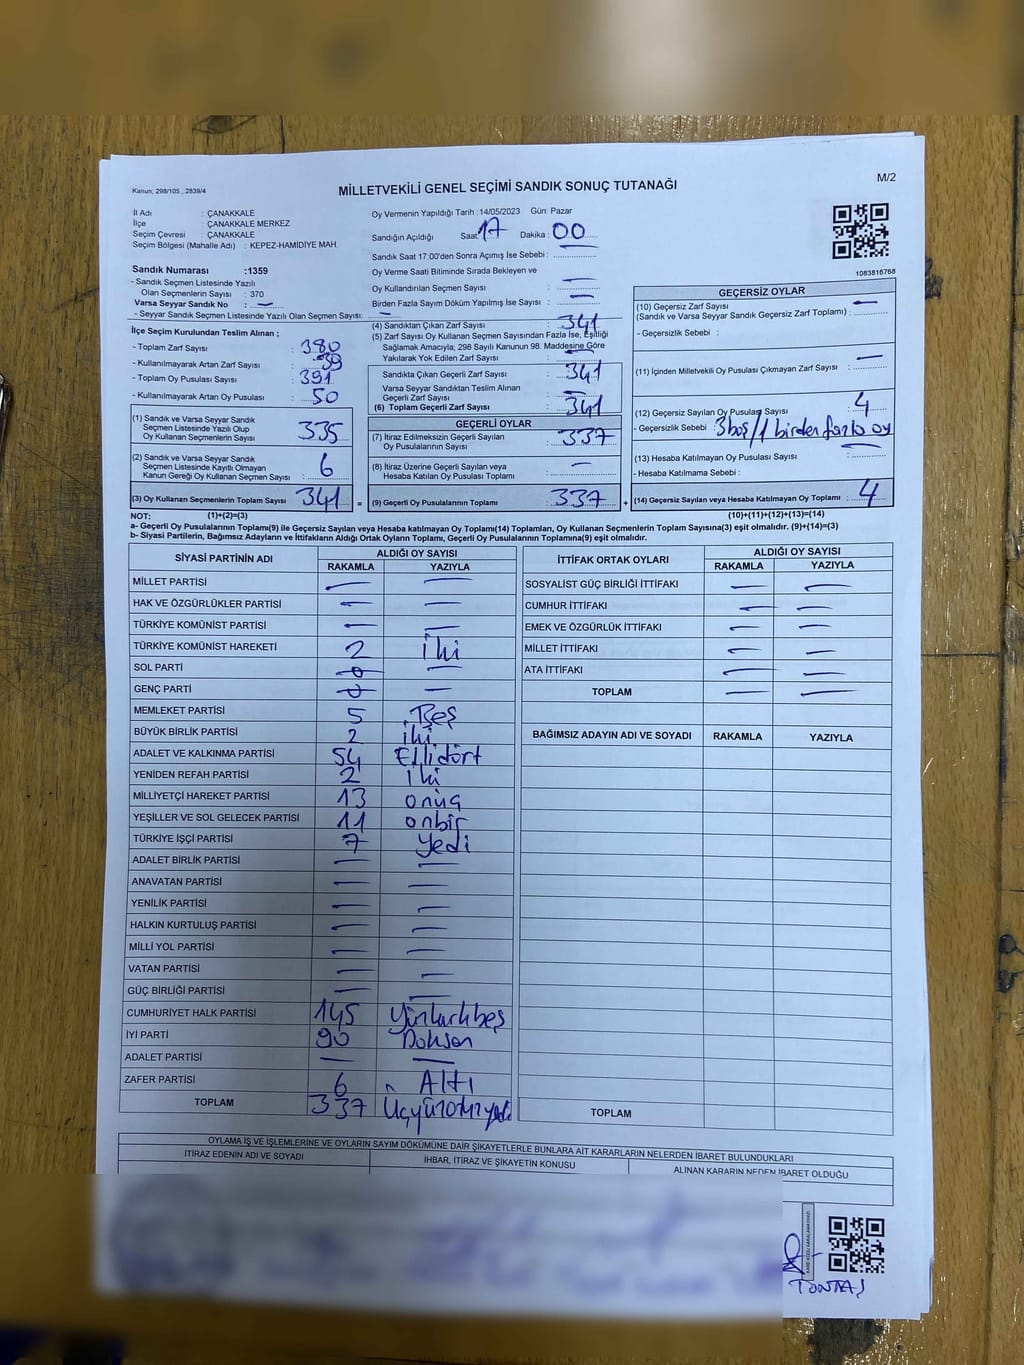 Kanun; 298/105 , 2839/4
MİLLETVEKİLİ GENEL SEÇİMİ SANDIK SONUÇ TUTANAĞI
M/2
İl Adı : ÇANAKKALE
İlçe : ÇANAKKALE MERKEZ
Seçim Çevresi : ÇANAKKALE
Seçim Bölgesi (Mahalle Adı) : KEPEZ-HAMİDİYE MAH.
Sandık Numarası :1359
- Sandık Seçmen Listesinde Yazılı
Olan Seçmenlerin Sayısı : 370
Varsa Seyyar Sandık No : —
- Seyyar Sandık Seçmen Listesinde Yazılı Olan Seçmen Sayısı: —
Oy Vermenin Yapıldığı Tarih :14/05/2023 Gün: Pazar
Sandığın Açıldığı Saat: 17 Dakika : 00
Sandık Saat 17.00'den Sonra Açımış İse Sebebi :
Oy Verme Saati Bitiminde Sırada Bekleyen ve
Oy Kullandırılan Seçmen Sayısı : —
Birden Fazla Sayım Döküm Yapılmış İse Sayısı : —
1083816768
İlçe Seçim Kurulundan Teslim Alınan ;
- Toplam Zarf Sayısı : 380
- Kullanılmayarak Artan Zarf Sayısı : 39
- Toplam Oy Pusulası Sayısı : 391
- Kullanılmayarak Artan Oy Pusulası : 50
(1) Sandık ve Varsa Seyyar Sandık
Seçmen Listesinde Yazılı Olup
Oy Kullanan Seçmenlerin Sayısı : 335
(2) Sandık ve Varsa Seyyar Sandık
Seçmen Listesinde Kayıtlı Olmayan
Kanun Gereği Oy Kullanan Seçmen Sayısı : 6
(3) Oy Kullanan Seçmenlerin Toplam Sayısı : 341
(4) Sandıktan Çıkan Zarf Sayısı : 341
(5) Zarf Sayısı Oy Kullanan Seçmen Sayısından Fazla İse, Eşitliği
Sağlamak Amacıyla, 298 Sayılı Kanunun 98. Maddesine Göre
Yakılarak Yok Edilen Zarf Sayısı : —
Sandıkta Çıkan Geçerli Zarf Sayısı : 341
Varsa Seyyar Sandıktan Teslim Alınan
Geçerli Zarf Sayısı : —
(6) Toplam Geçerli Zarf Sayısı : 341
GEÇERLİ OYLAR
(7) İtiraz Edilmeksizin Geçerli Sayılan
Oy Pusulalarının Sayısı : 337
(8) İtiraz Üzerine Geçerli Sayılan veya
Hesaba Katılan Oy Pusulası Toplamı : —
= (9) Geçerli Oy Pusulalarının Toplamı : 337
GEÇERSİZ OYLAR
(10) Geçersiz Zarf Sayısı
(Sandık ve Varsa Seyyar Sandık Geçersiz Zarf Toplamı) : —
- Geçersizlik Sebebi :
(11) İçinden Milletvekili Oy Pusulası Çıkmayan Zarf Sayısı : —
(12) Geçersiz Sayılan Oy Pusulası Sayısı : 4
- Geçersizlik Sebebi : 3 boş/1 birden fazla oy
(13) Hesaba Katılmayan Oy Pusulası Sayısı :
- Hesaba Katılmama Sebebi :
+ (14) Geçersiz Sayılan veya Hesaba Katılmayan Oy Toplamı : 4
NOT: (1)+(2)=(3)
(10)+(11)+(12)+(13)=(14)
a- Geçerli Oy Pusulalarının Toplamı(9) ile Geçersiz Sayılan veya Hesaba katılmayan Oy Toplamı(14) Toplamları, Oy Kullanan Seçmenlerin Toplam Sayısına(3) eşit olmalıdır. (9)+(14)=(3)
b- Siyasi Partilerin, Bağımsız Adayların ve İttifakların Aldığı Ortak Oyların Toplamı, Geçerli Oy Pusulalarının Toplamına(9) eşit olmalıdır.
SİYASİ PARTİNİN ADI ALDIĞI OY SAYISI
RAKAMLA YAZIYLA
MİLLET PARTİSİ — —
HAK VE ÖZGÜRLÜKLER PARTİSİ — —
TÜRKİYE KOMÜNİST PARTİSİ — —
TÜRKİYE KOMÜNİST HAREKETİ 2 İki
SOL PARTİ 0 —
GENÇ PARTİ 0 —
MEMLEKET PARTİSİ 5 Beş
BÜYÜK BİRLİK PARTİSİ 2 iki
ADALET VE KALKINMA PARTİSİ 54 Ellidört
YENİDEN REFAH PARTİSİ 2 iki
MİLLİYETÇİ HAREKET PARTİSİ 13 onüç
YEŞİLLER VE SOL GELECEK PARTİSİ 11 onbir
TÜRKİYE İŞÇİ PARTİSİ 7 Yedi
ADALET BİRLİK PARTİSİ — —
ANAVATAN PARTİSİ — —
YENİLİK PARTİSİ — —
HALKIN KURTULUŞ PARTİSİ — —
MİLLİ YOL PARTİSİ — —
VATAN PARTİSİ — —
GÜÇ BİRLİĞİ PARTİSİ — —
CUMHURİYET HALK PARTİSİ 145 Yüzkırkbeş
İYİ PARTİ 90 Doksan
ADALET PARTİSİ — —
ZAFER PARTİSİ 6 Altı
TOPLAM 337 Üçyüzotuzyedi
İTTİFAK ORTAK OYLARI ALDIĞI OY SAYISI
RAKAMLA YAZIYLA
SOSYALİST GÜÇ BİRLİĞİ İTTİFAKI — —
CUMHUR İTTİFAKI — —
EMEK VE ÖZGÜRLÜK İTTİFAKI — —
MİLLET İTTİFAKI — —
ATA İTTİFAKI — —
TOPLAM — —
BAĞIMSIZ ADAYIN ADI VE SOYADI RAKAMLA YAZIYLA
TOPLAM
OYLAMA İŞ VE İŞLEMLERİNE VE OYLARIN SAYIM DÖKÜMÜNE DAİR ŞİKAYETLERLE BUNLARA AİT KARARLARIN NELERDEN İBARET BULUNDUKLARI
İTİRAZ EDENİN ADI VE SOYADI İHBAR, İTİRAZ VE ŞİKAYETİN KONUSU ALINAN KARARIN NEDEN İBARET OLDUĞU